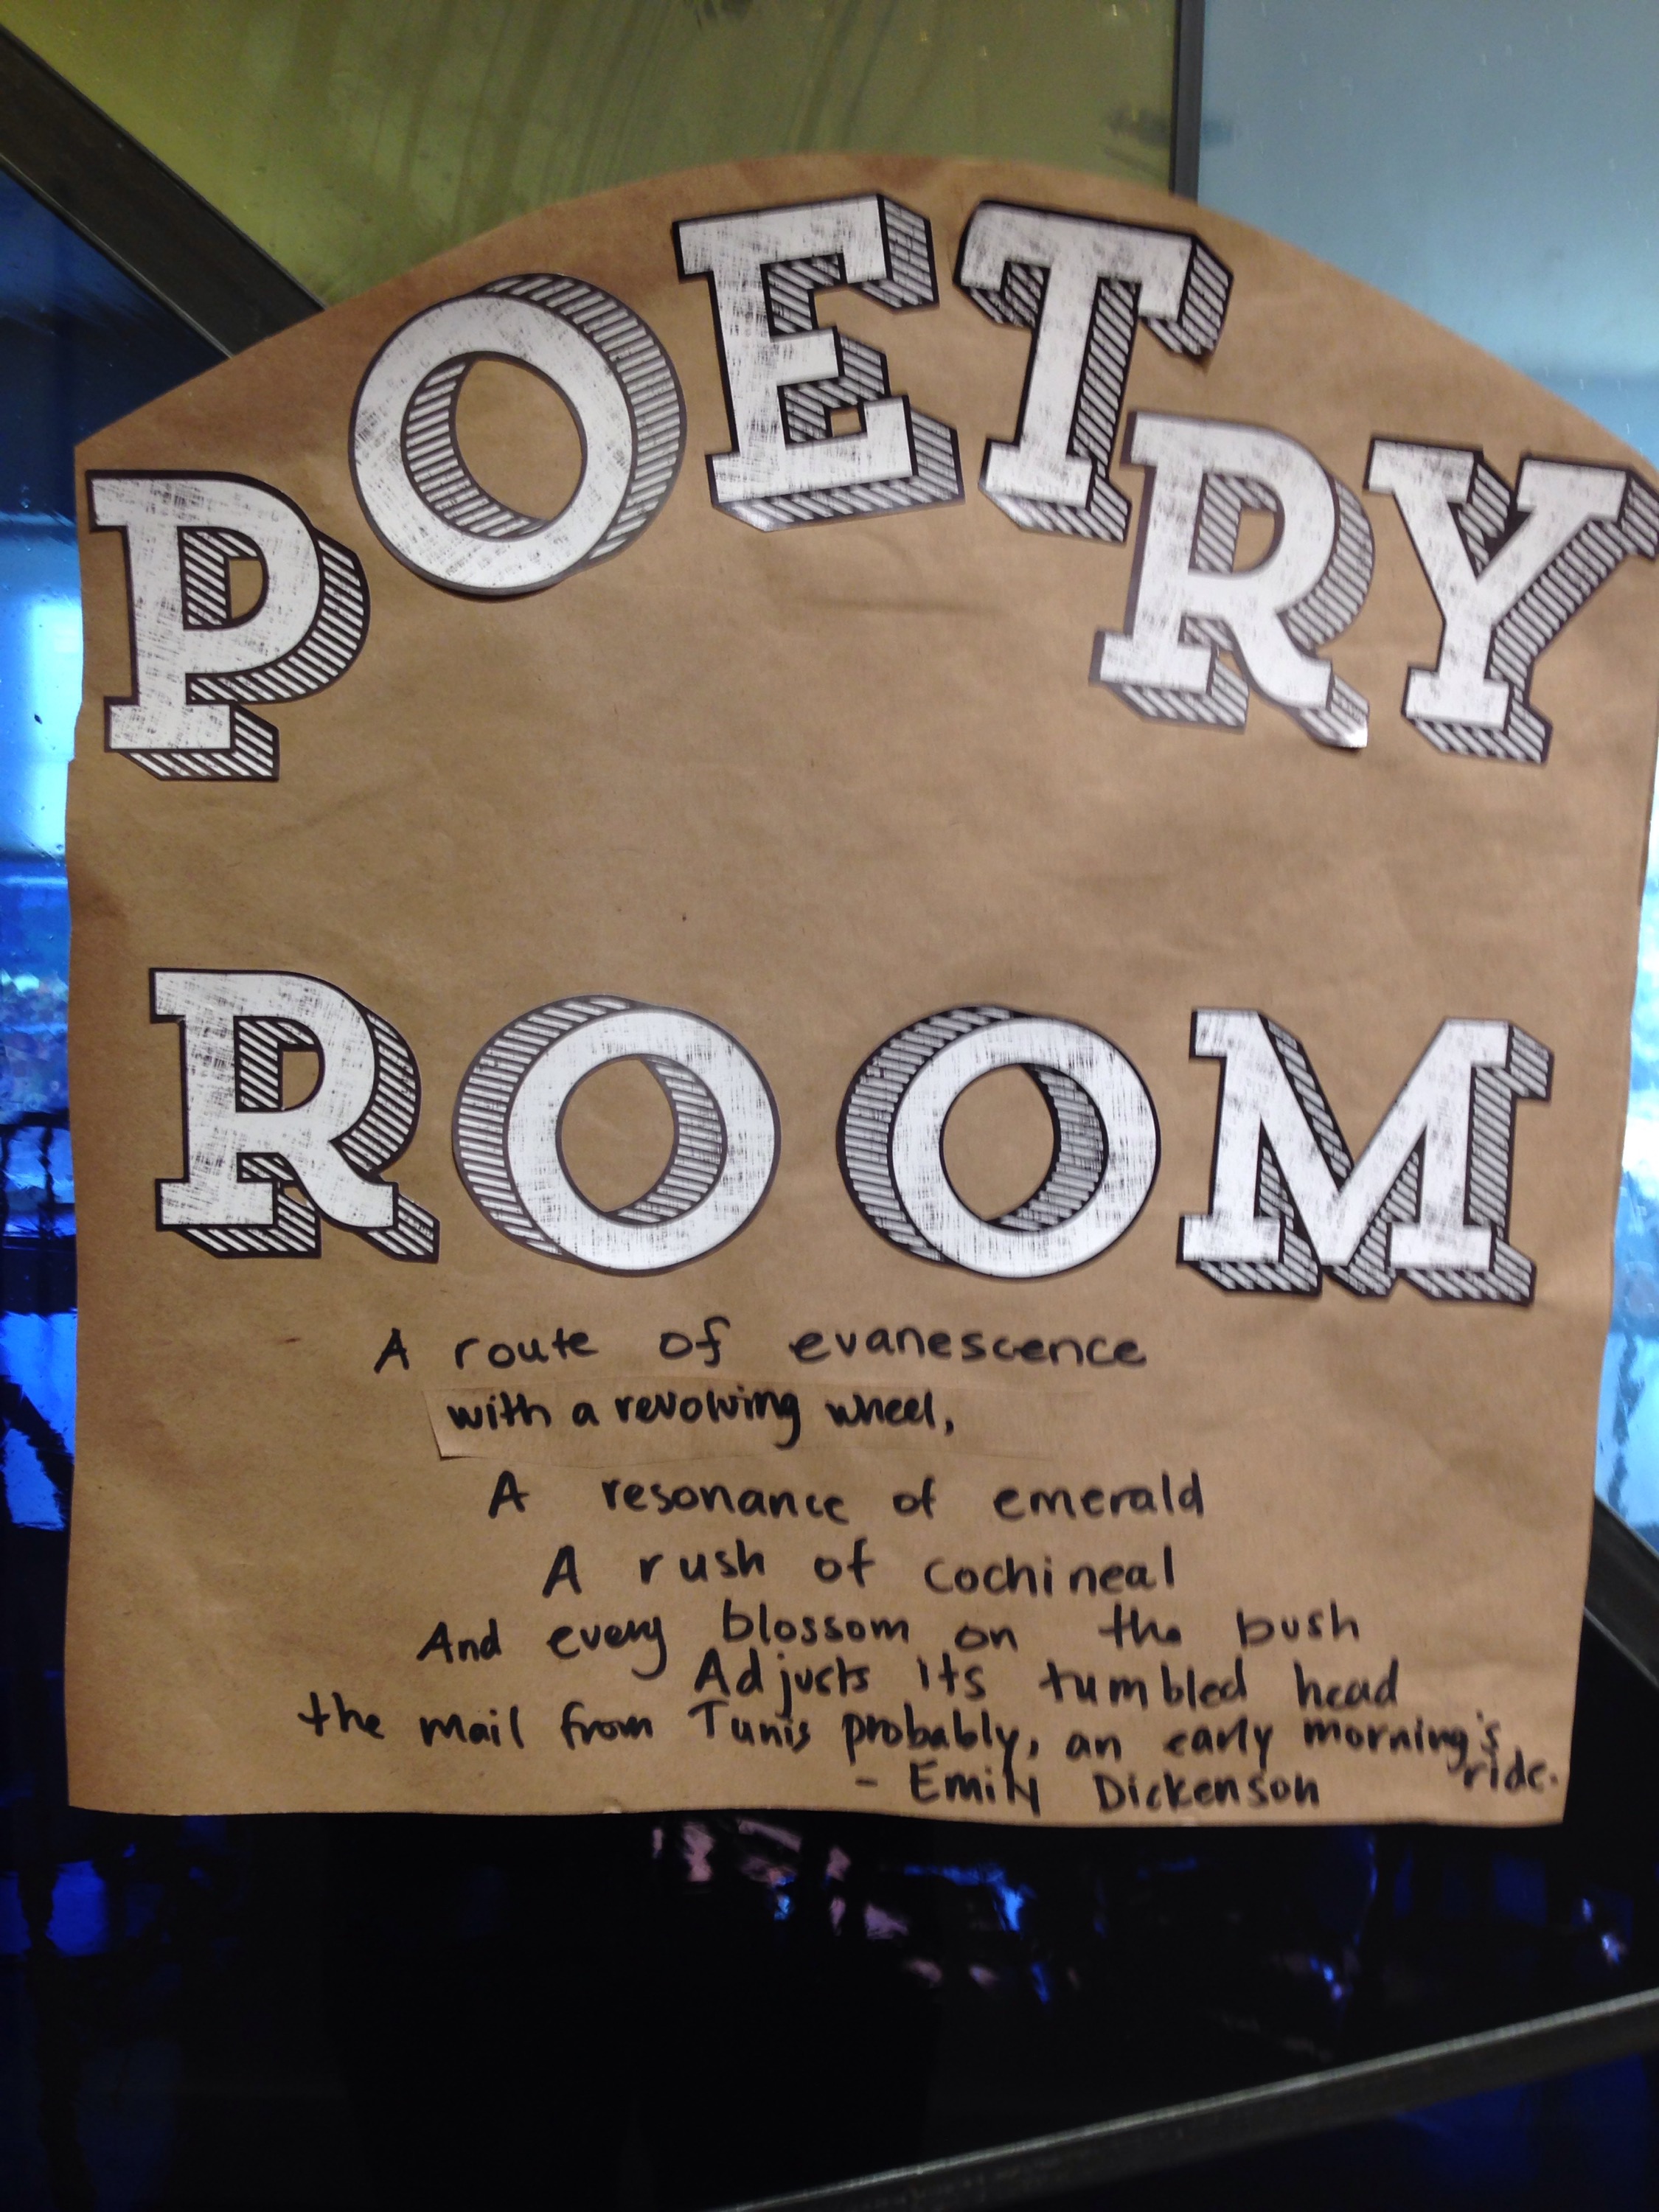 POETRY
ROOM
A route of evanescence
with a revolving wheel,
A resonance of emerald
A rush of cochineal
And every blossom on the bush
Adjusts its tumbled head
the mail from Tunis probably, an early morning's
ride.
- Emily Dickenson